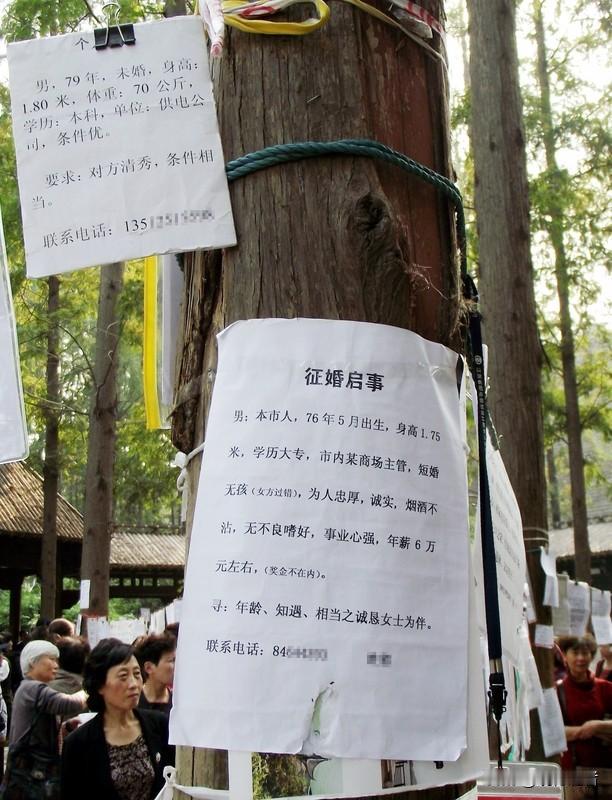 个
男，79年，未婚，身高：
1.80 米，体重：70 公斤，
学历：本科，单位：供电公
司，条件优。
要求：对方清秀，条件相
当。
联系电话：135
征婚启事
男；本市人，76 年 5 月出生，身高 1.75
米，学历大专，市内某商场主管，短婚
无孩（女方过错），为人忠厚，诚实，烟酒不
沾，无不良嗜好，事业心强，年薪 6 万
元左右，（奖金不在内）。
寻：年龄、知遇、相当之诚恳女士为伴。
联系电话：84